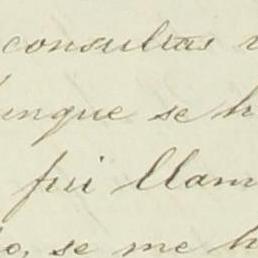 consultas
unque se h
fui llam
o, se me h